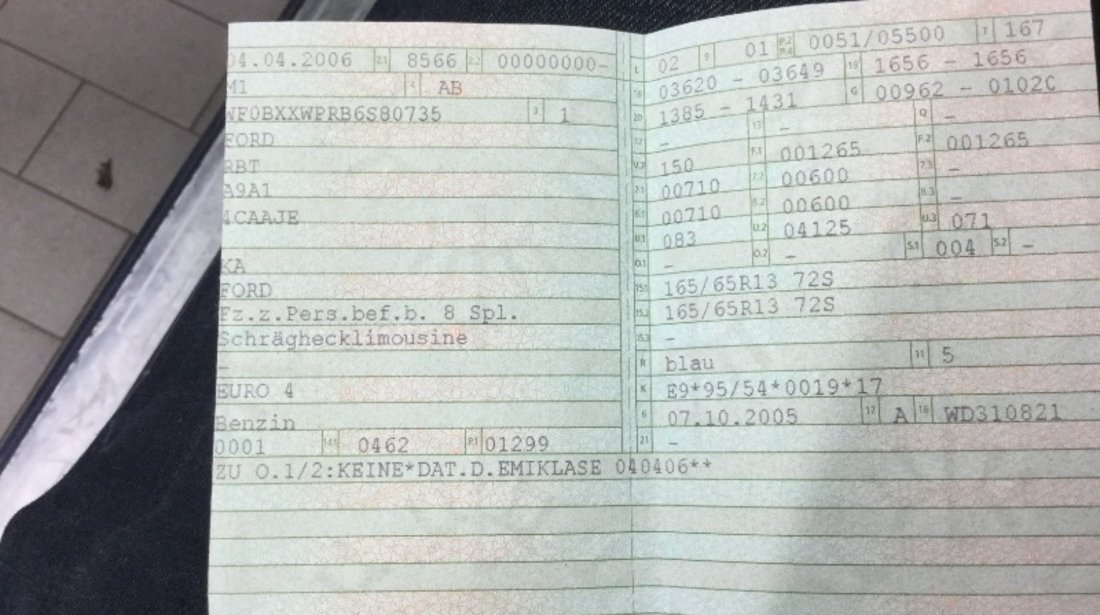 04.04.2006 2.1 8566 2.2 00000000-
M1 4 AB
WF0BXXWPRB6S80735 3 1
FORD
RBT
A9A1
4CAAJE
KA
FORD
Fz.z.Pers.bef.b. 8 Spl.
Schräghecklimousine
-
EURO 4
Benzin
0001 14.1 0462 P.1 01299
ZU O.1/2:KEINE*DAT.D.EMIKLASE 040406**
L 02 9 01 P.2 P.4 0051/05500 T 167
18 03620 - 03649 19 1656 - 1656
20 1385 - 1431 G 00962 - 0102
12 - 13 - Q -
V.7 150 F.1 001265 F.2 001265
7.1 00710 7.2 00600 7.3 -
8.1 00710 8.2 00600 8.3 -
U.1 083 U.2 04125 U.3 071
O.1 - O.2 - S.1 004 S.2 -
15.1 165/65R13 72S
15.2 165/65R13 72S
15.3 -
R blau 11 5
K E9*95/54*0019*17
6 07.10.2005 17 A 16 WD310821
21 -